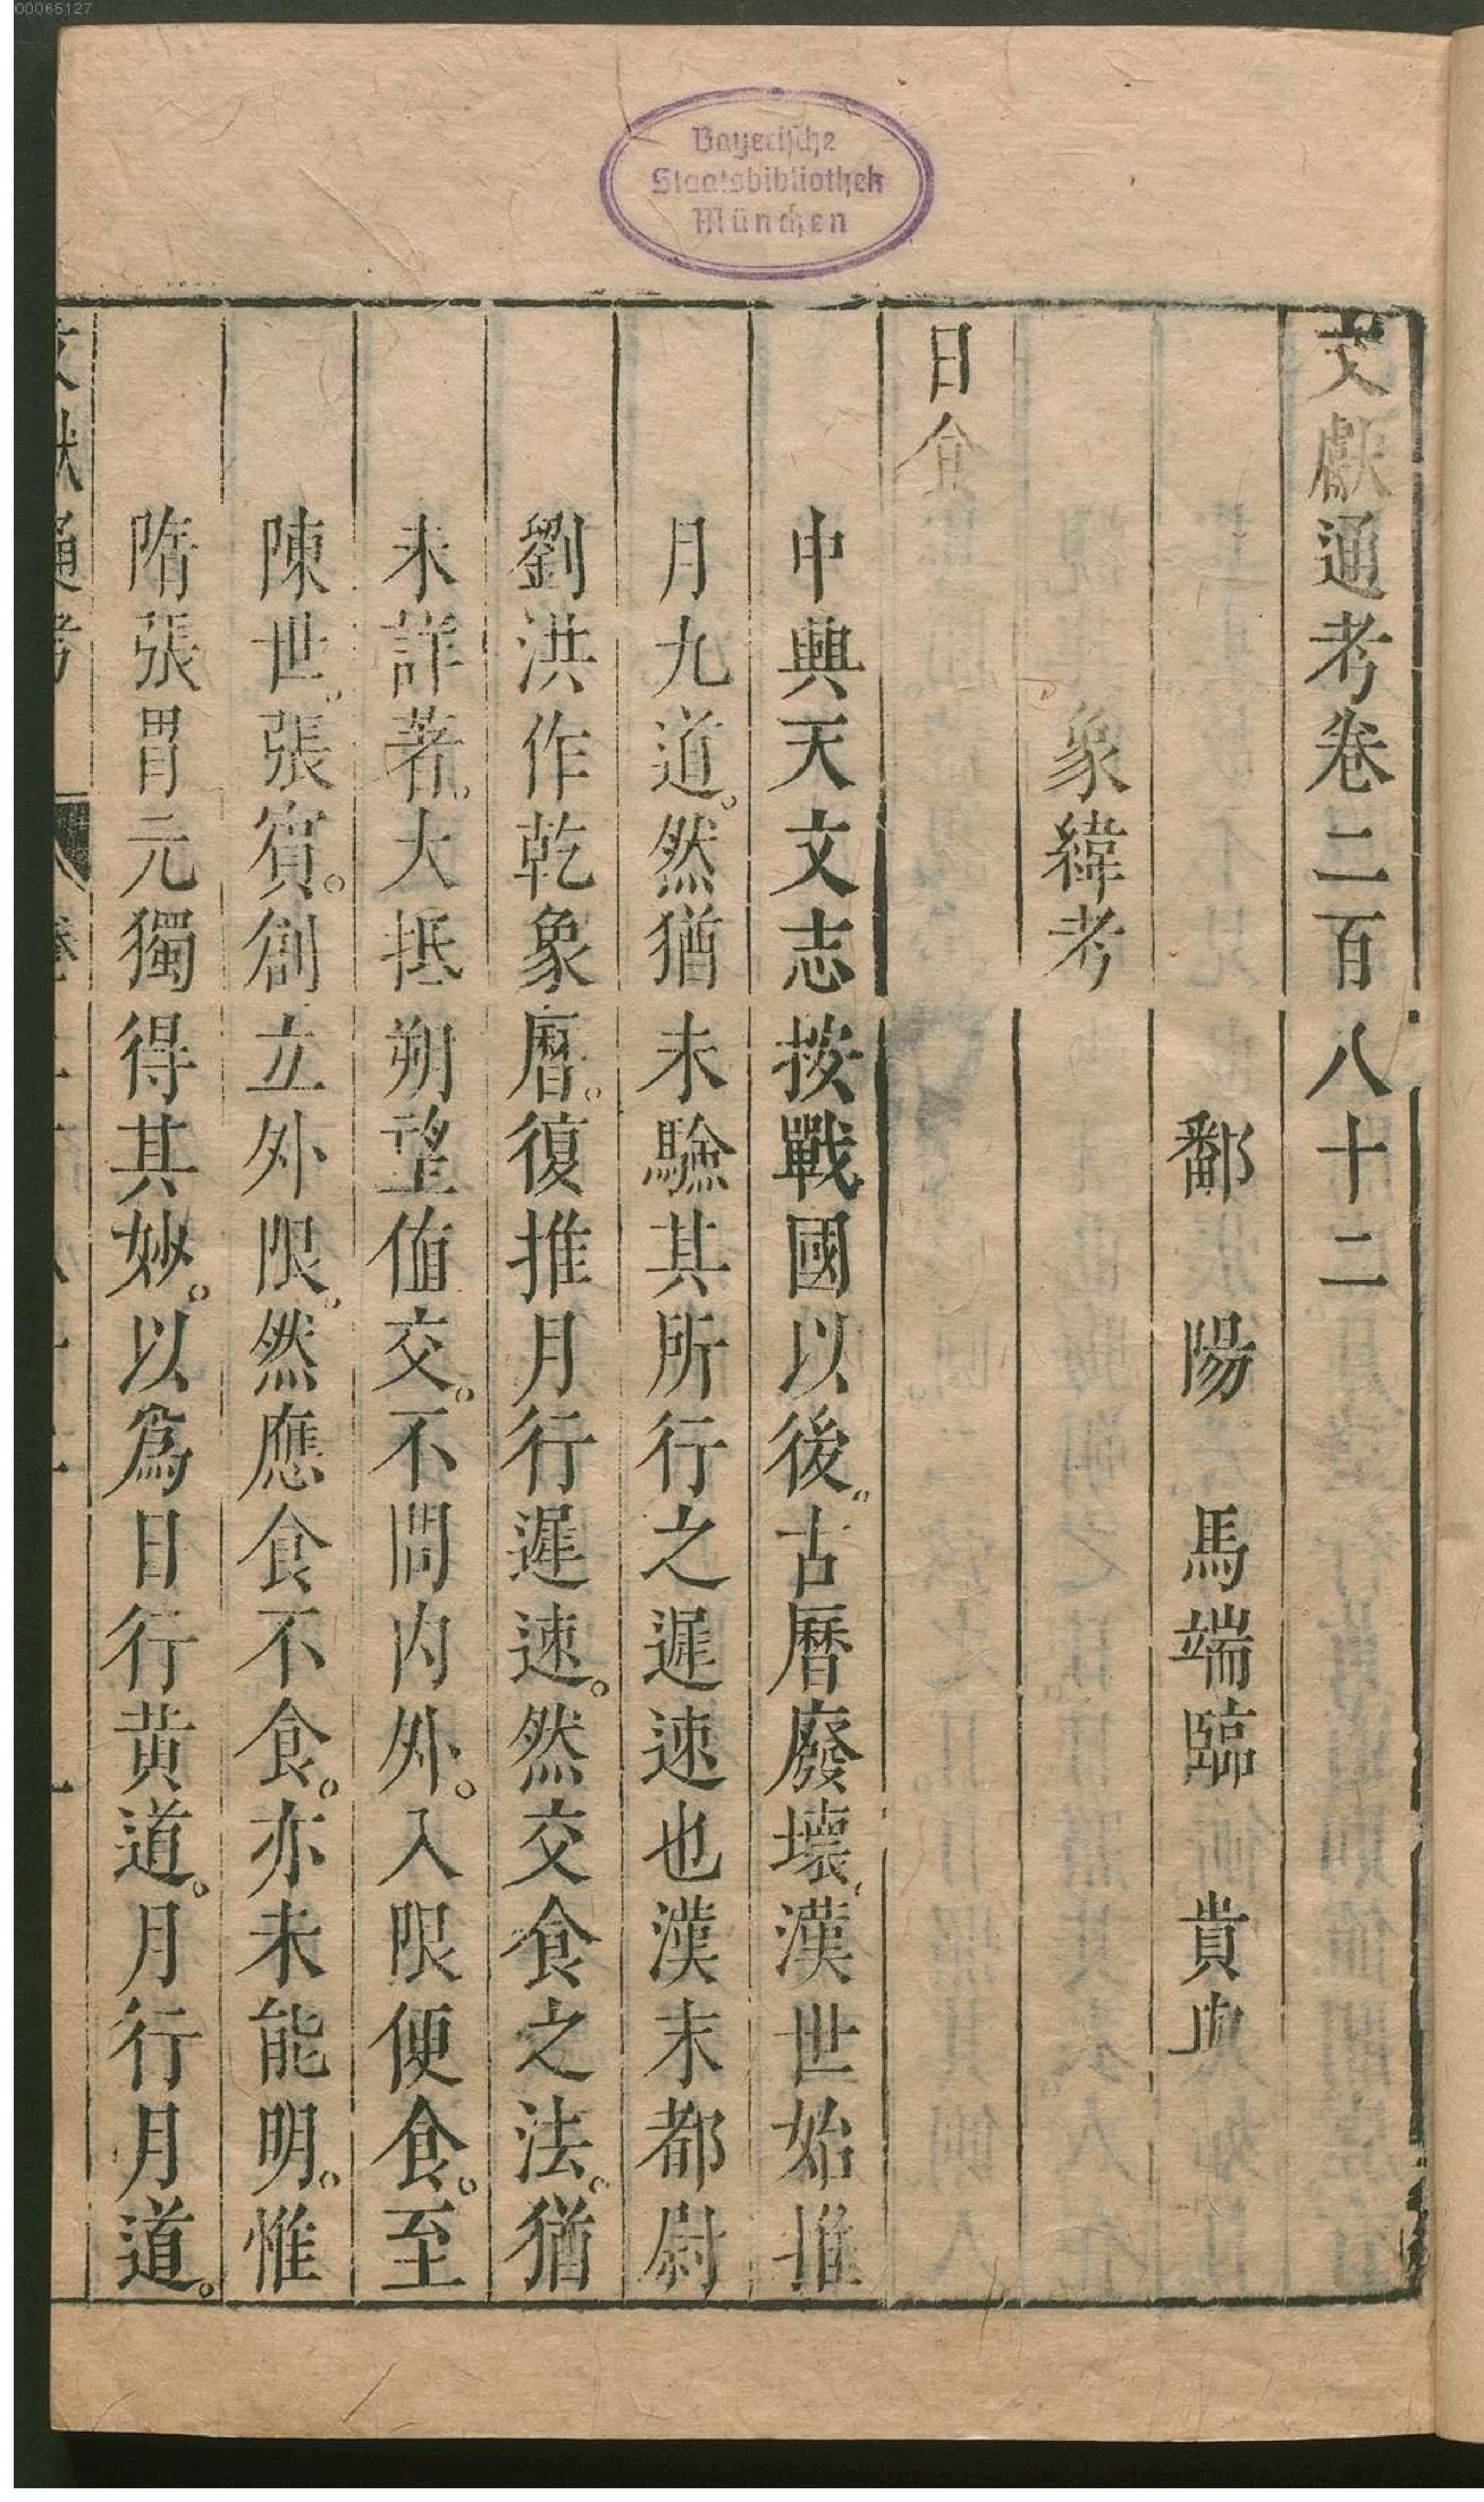 00065127
Bayerische
Staatsbibliothek
München
文獻通考卷二百八十二
鄱陽馬端臨貴與
象緯考
日食
中興天文志按戰國以後古曆廢壞漢世始推
月九道。然猶未驗其所行之遲速也漢末都尉
劉洪作乾象曆。復推月行遲速。然交食之法。猶
未詳著。大抵朔望值交。不問内外。入限便食。至
陳世。張賓。創立外限。然應食不食。亦未能明。惟
隋張冑元獨得其妙。以爲日行黄道。月行月道。